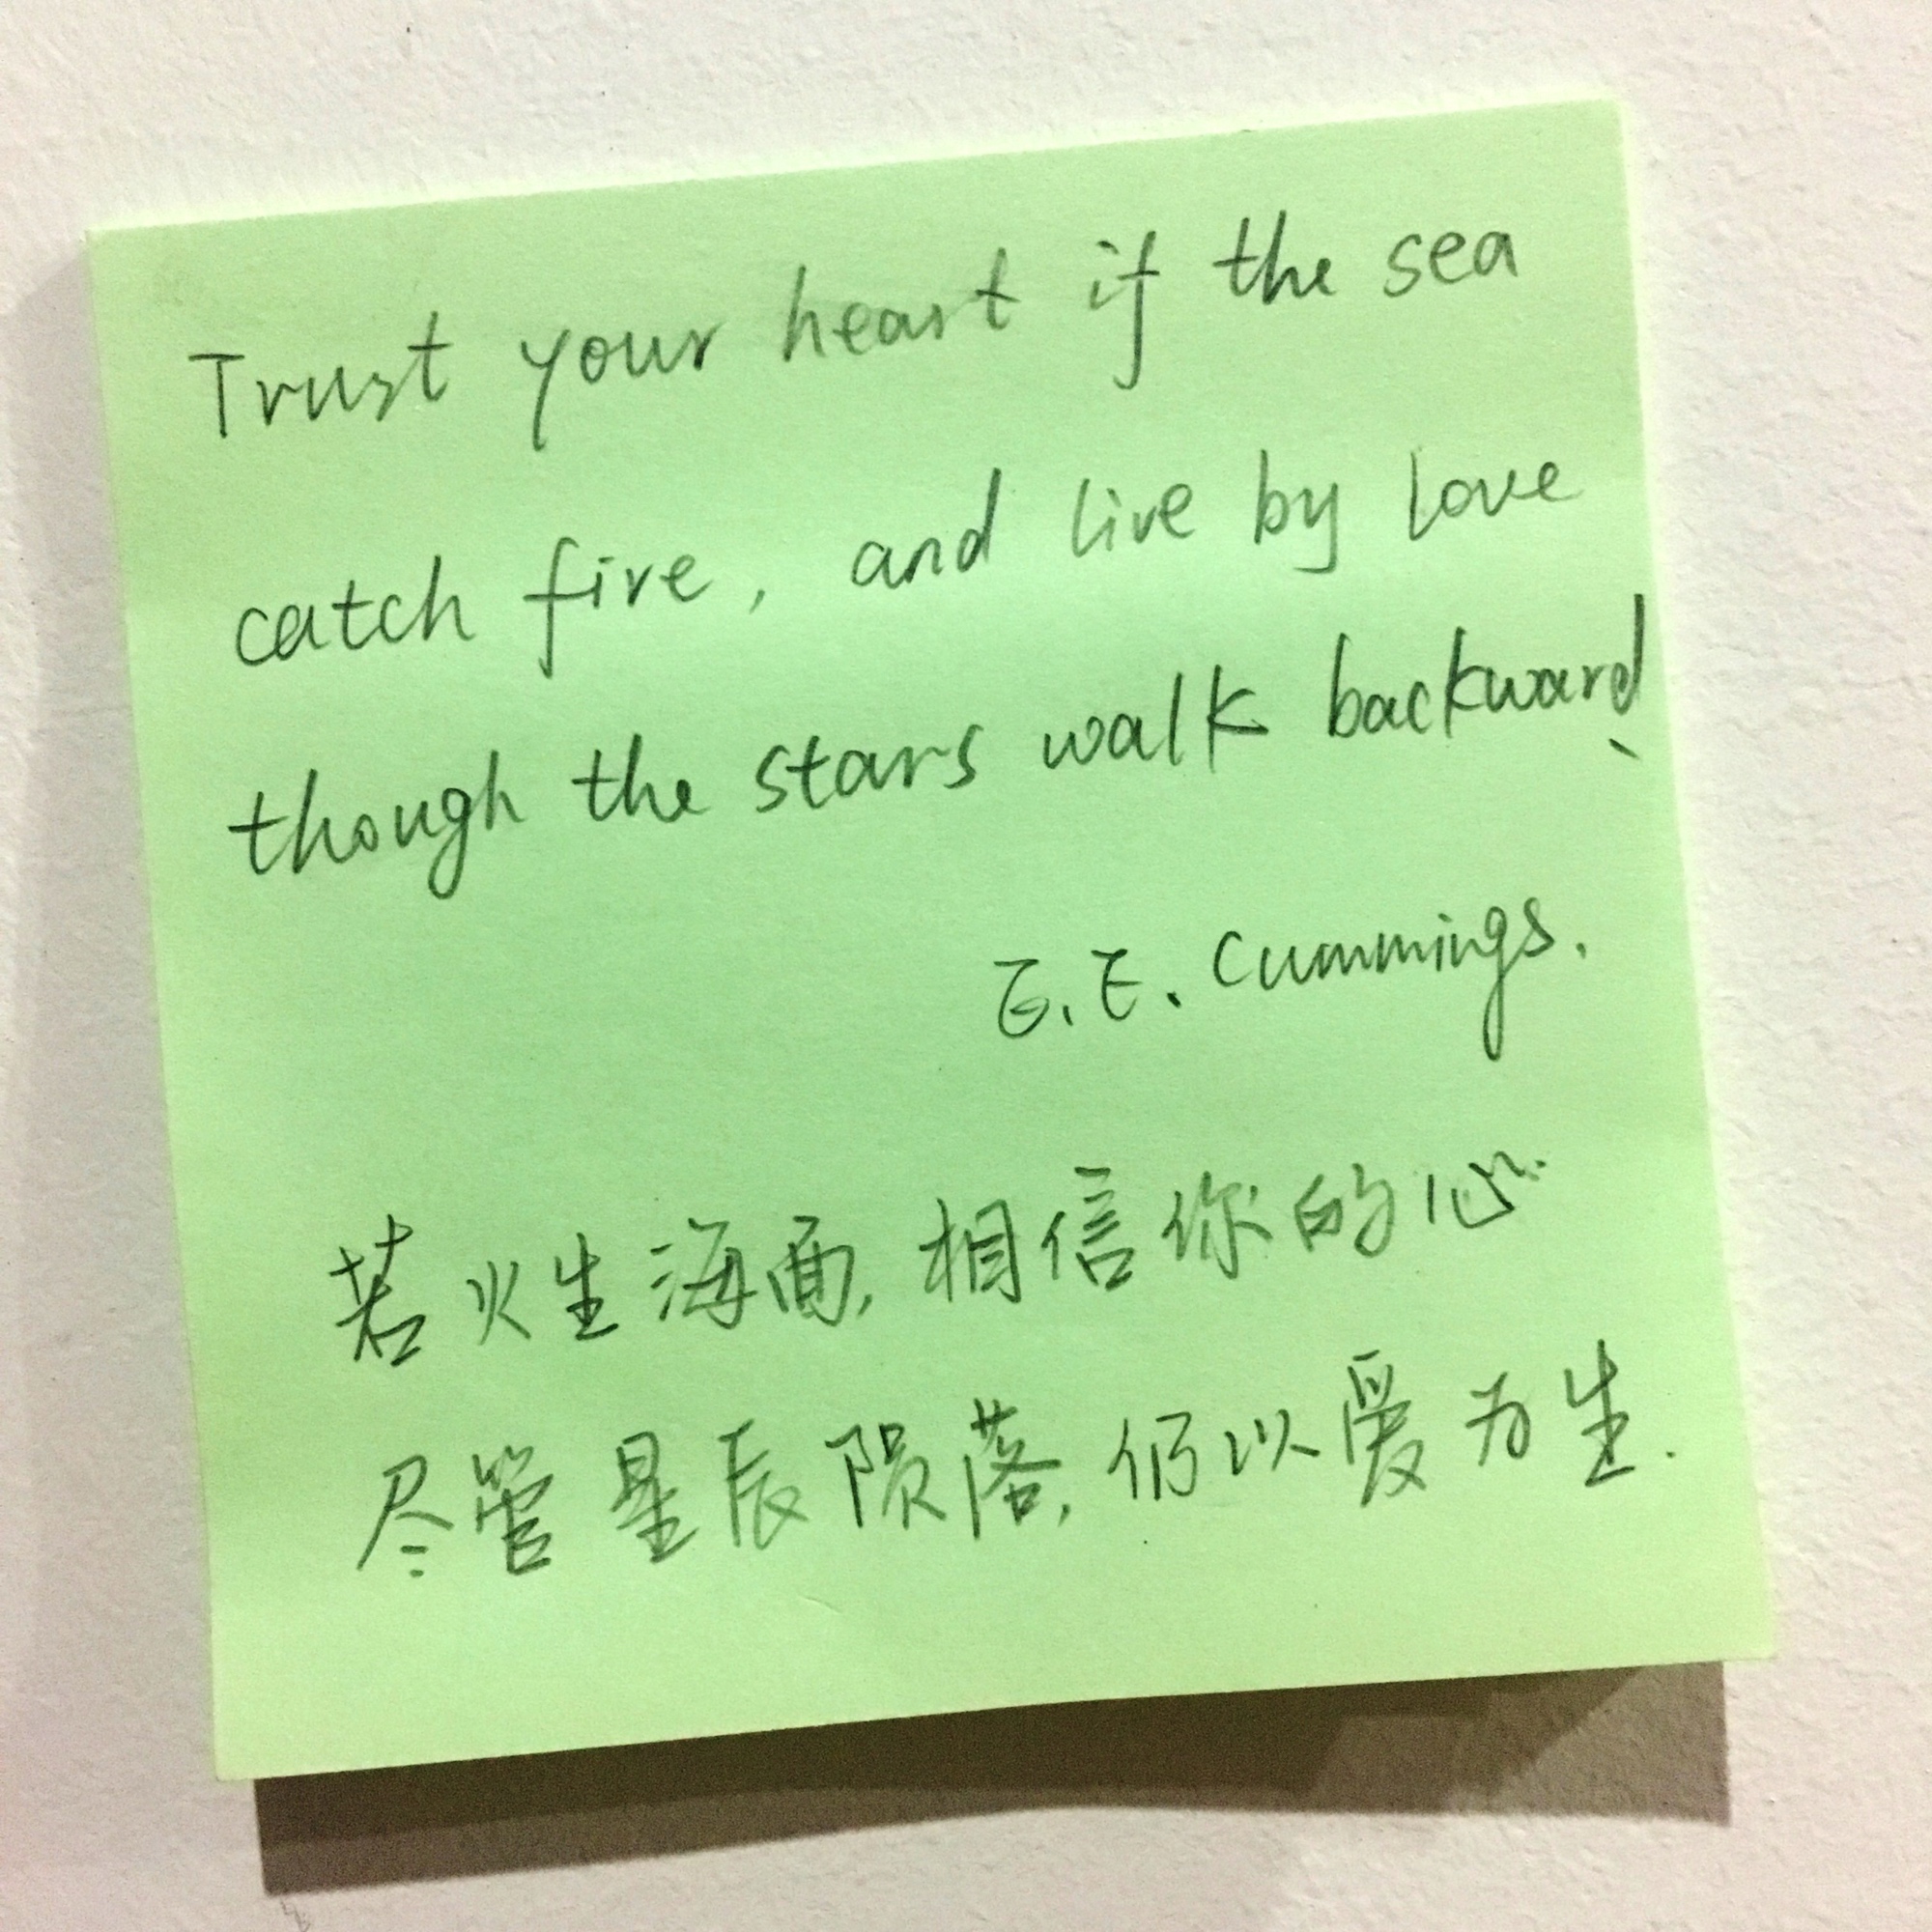 Trust your heart if the sea
catch fire, and live by love
though the stars walk backward.
E.E. Cummings.
若火生海面,相信你的心.
尽管星辰陨落,仍以爱为生.